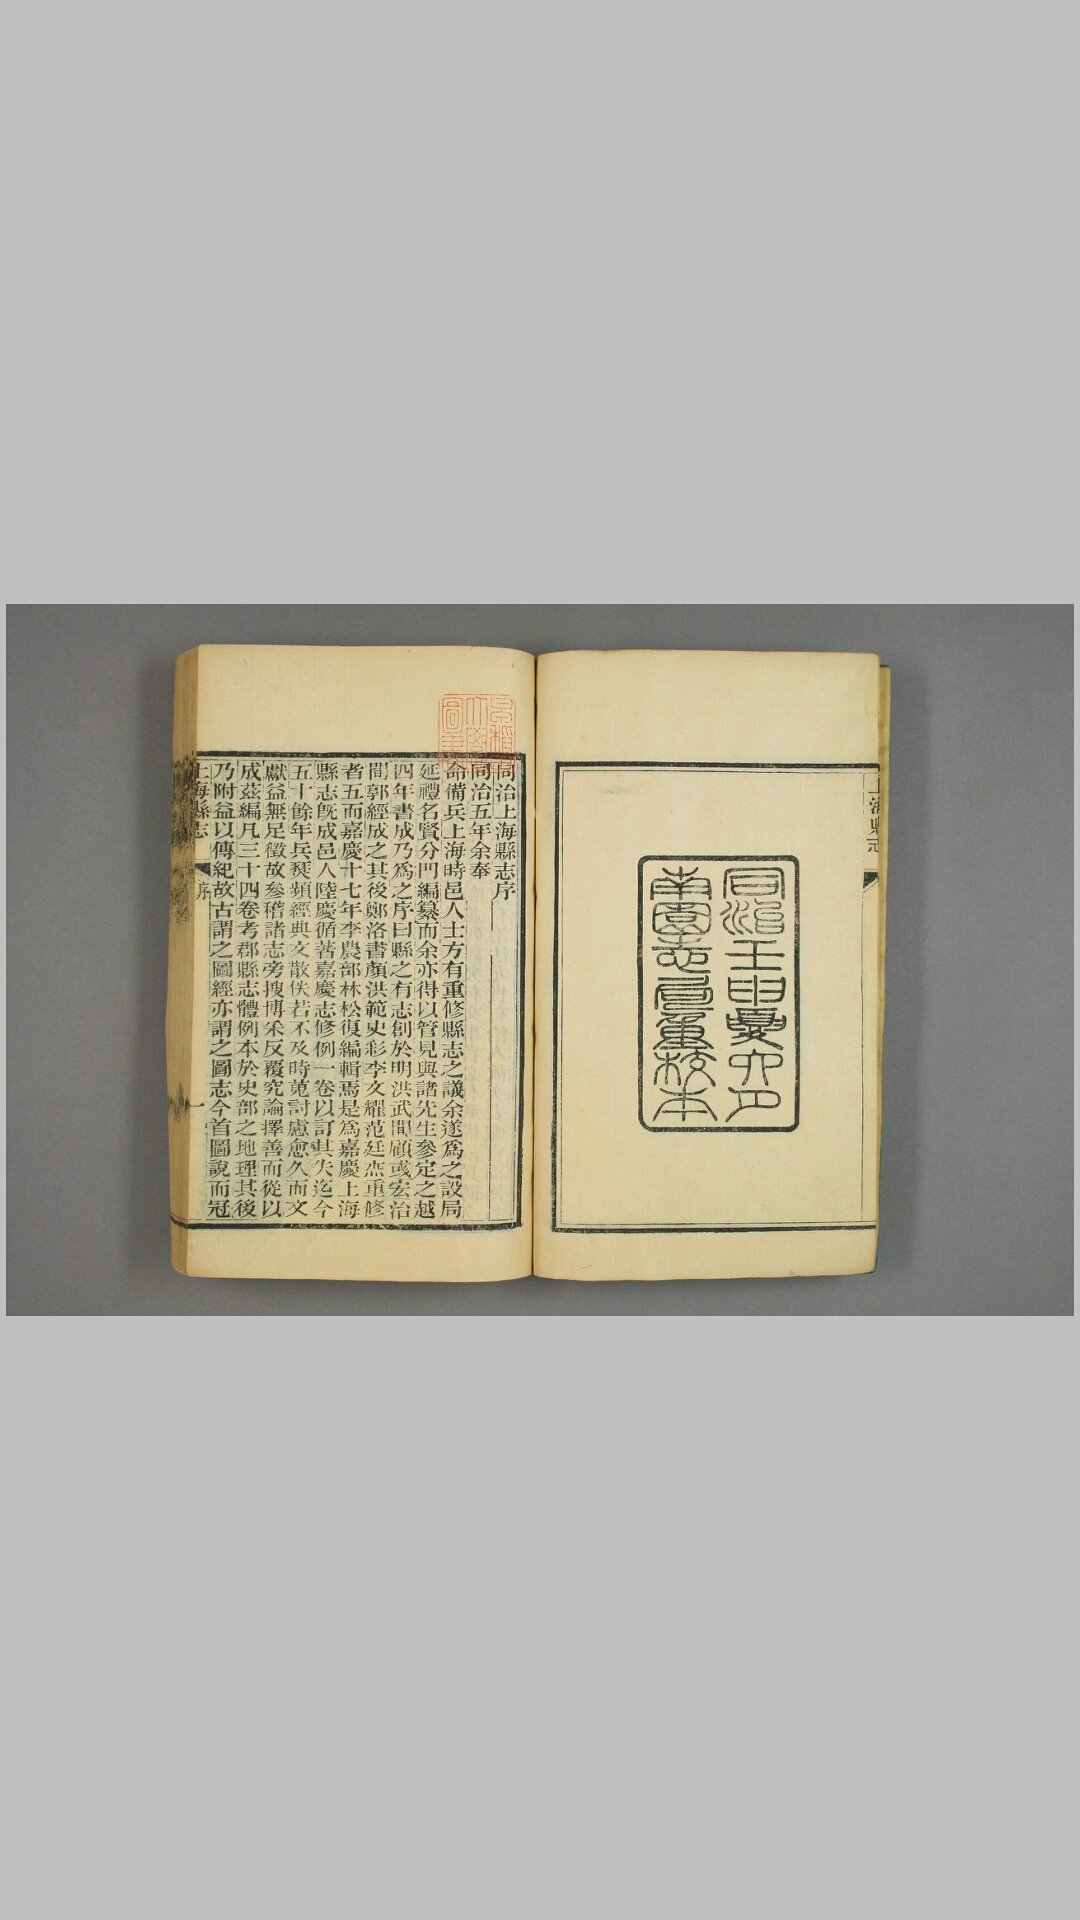 上海縣志
同治壬申夏六月
南園志局重校本
同治上海縣志序
同治五年余奉
命備兵上海時邑人士方有重修縣志之議余遂爲之設局
延禮名賢分門編纂而余亦得以管見與諸先生參定之越
四年書成乃爲之序曰縣之有志創於明洪武間顧彧宏治
間郭經成之其後鄭洛書顏洪範史彩李文耀范廷杰重修
者五而嘉慶十七年李農部林松復編輯焉是爲嘉慶上海
縣志旣成邑人陸慶循著嘉慶志修例一卷以訂其失迄今
五十餘年兵燹頻經典文散佚若不及時蒐討慮愈久而文
獻益無足徵故參稽諸志旁搜博采反覆究論擇善而從以
成茲編凡三十四卷考郡縣志體例本於史部之地理其後
乃附益以傳紀故古謂之圖經亦謂之圖志今首圖說而冠
上海縣志 序 一